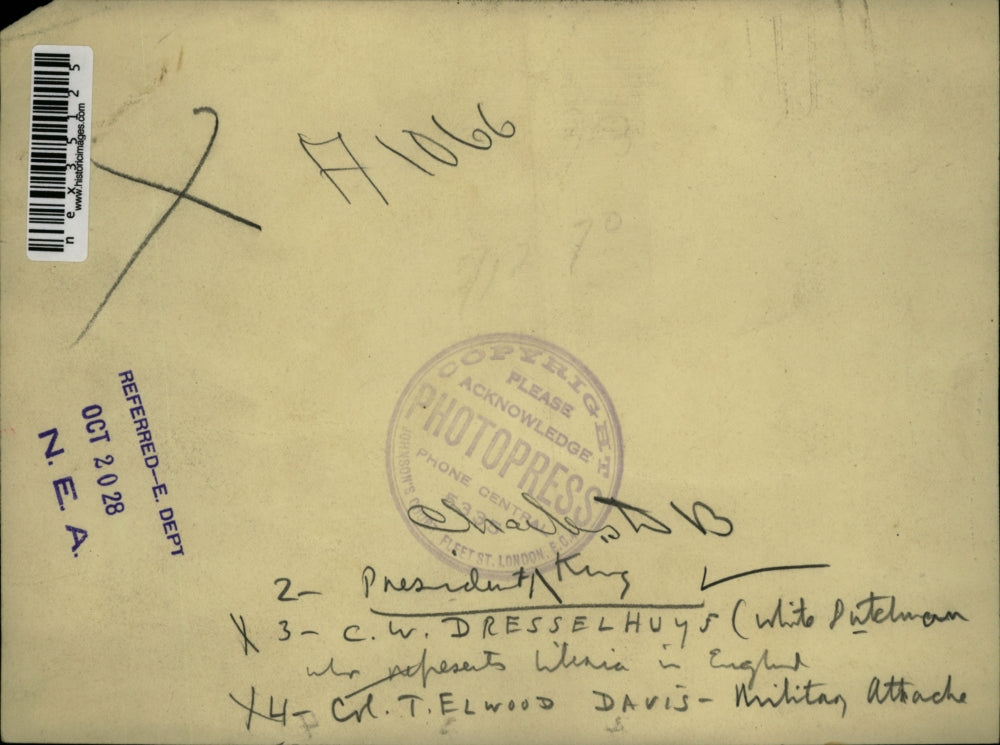 nex35125
www.historicimages.com
A 1066
REFERRED—E. DEPT
OCT 20 28
N. E. A.
COPYRIGHT
PLEASE
ACKNOWLEDGE
PHOTOPRESS
PHONE CENTRAL
JOHNSON'S
FLEET ST. LONDON. E.C.
Charles D B
2- President King
X 3- C. W. DRESSELHUYS (white Dutchman
who represents Liberia in England
X 4- Col. T. ELWOOD DAVIS- Military Attache